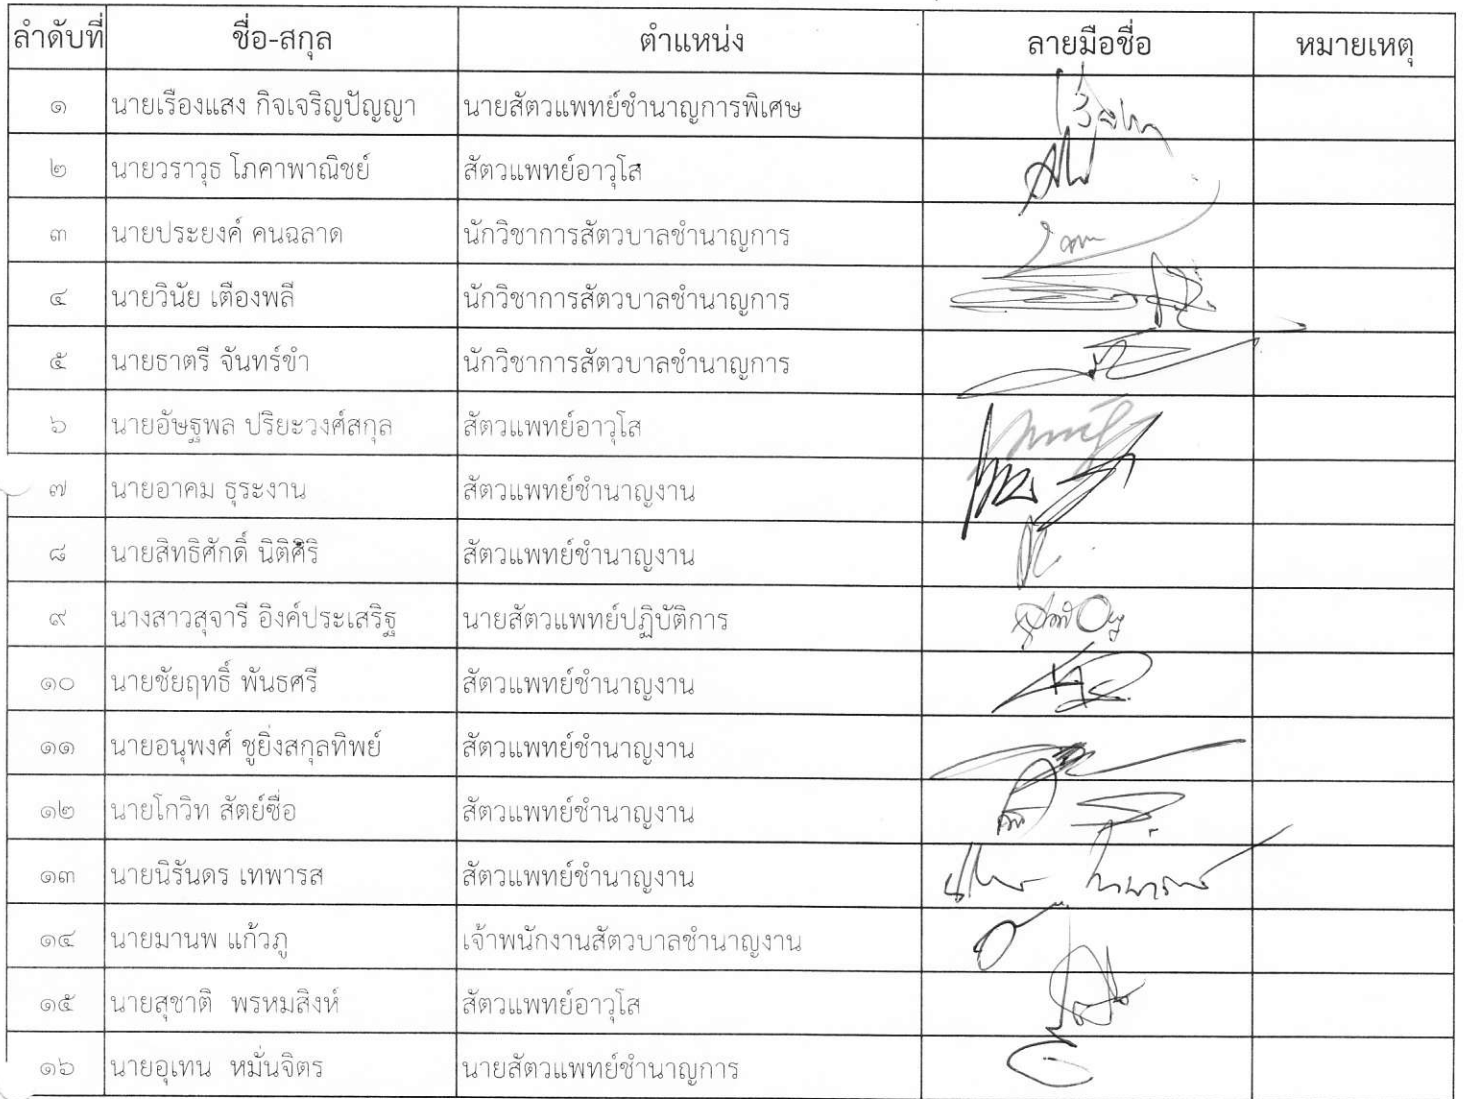 ลำดับที่ ชื่อ-สกุล ตำแหน่ง ลายมือชื่อ หมายเหตุ
๑ นายเรืองแสง กิจเจริญปัญญา นายสัตวแพทย์ชำนาญการพิเศษ
๒ นายวราวุธ โภคาพาณิชย์ สัตวแพทย์อาวุโส
๓ นายประยงค์ คนฉลาด นักวิชาการสัตวบาลชำนาญการ
๔ นายวินัย เตืองพลี นักวิชาการสัตวบาลชำนาญการ
๕ นายธาตรี จันทร์ขำ นักวิชาการสัตวบาลชำนาญการ
๖ นายอัษฐพล ปริยะวงศ์สกุล สัตวแพทย์อาวุโส
๗ นายอาคม ธุระงาน สัตวแพทย์ชำนาญงาน
๘ นายสิทธิศักดิ์ นิติศิริ สัตวแพทย์ชำนาญงาน
๙ นางสาวสุจารี อิงค์ประเสริฐ นายสัตวแพทย์ปฏิบัติการ
๑๐ นายชัยฤทธิ์ พันธศรี สัตวแพทย์ชำนาญงาน
๑๑ นายอนุพงศ์ ชูยิ่งสกุลทิพย์ สัตวแพทย์ชำนาญงาน
๑๒ นายโกวิท สัตย์ซื่อ สัตวแพทย์ชำนาญงาน
๑๓ นายนิรันดร เทพารส สัตวแพทย์ชำนาญงาน
๑๔ นายมานพ แก้วภู เจ้าพนักงานสัตวบาลชำนาญงาน
๑๕ นายสุชาติ พรหมสิงห์ สัตวแพทย์อาวุโส
๑๖ นายอุเทน หมั่นจิตร นายสัตวแพทย์ชำนาญการ